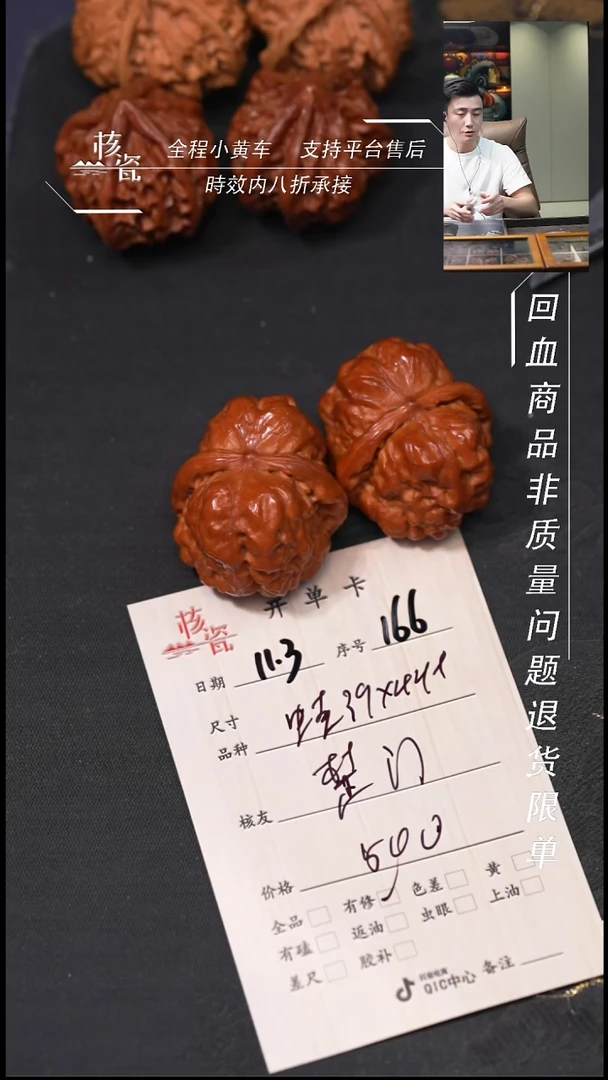 核瓷
全程小黄车 支持平台售后
時效内八折承接
回血商品非质量问题退货限单
核瓷
开单卡
日期 11.3 序号 166
尺寸
品种
核友 楚门
价格 590
全品 有修 色差 黄
有磕 返油 虫眼 上油
差尺 胶补
QIC中心 备注